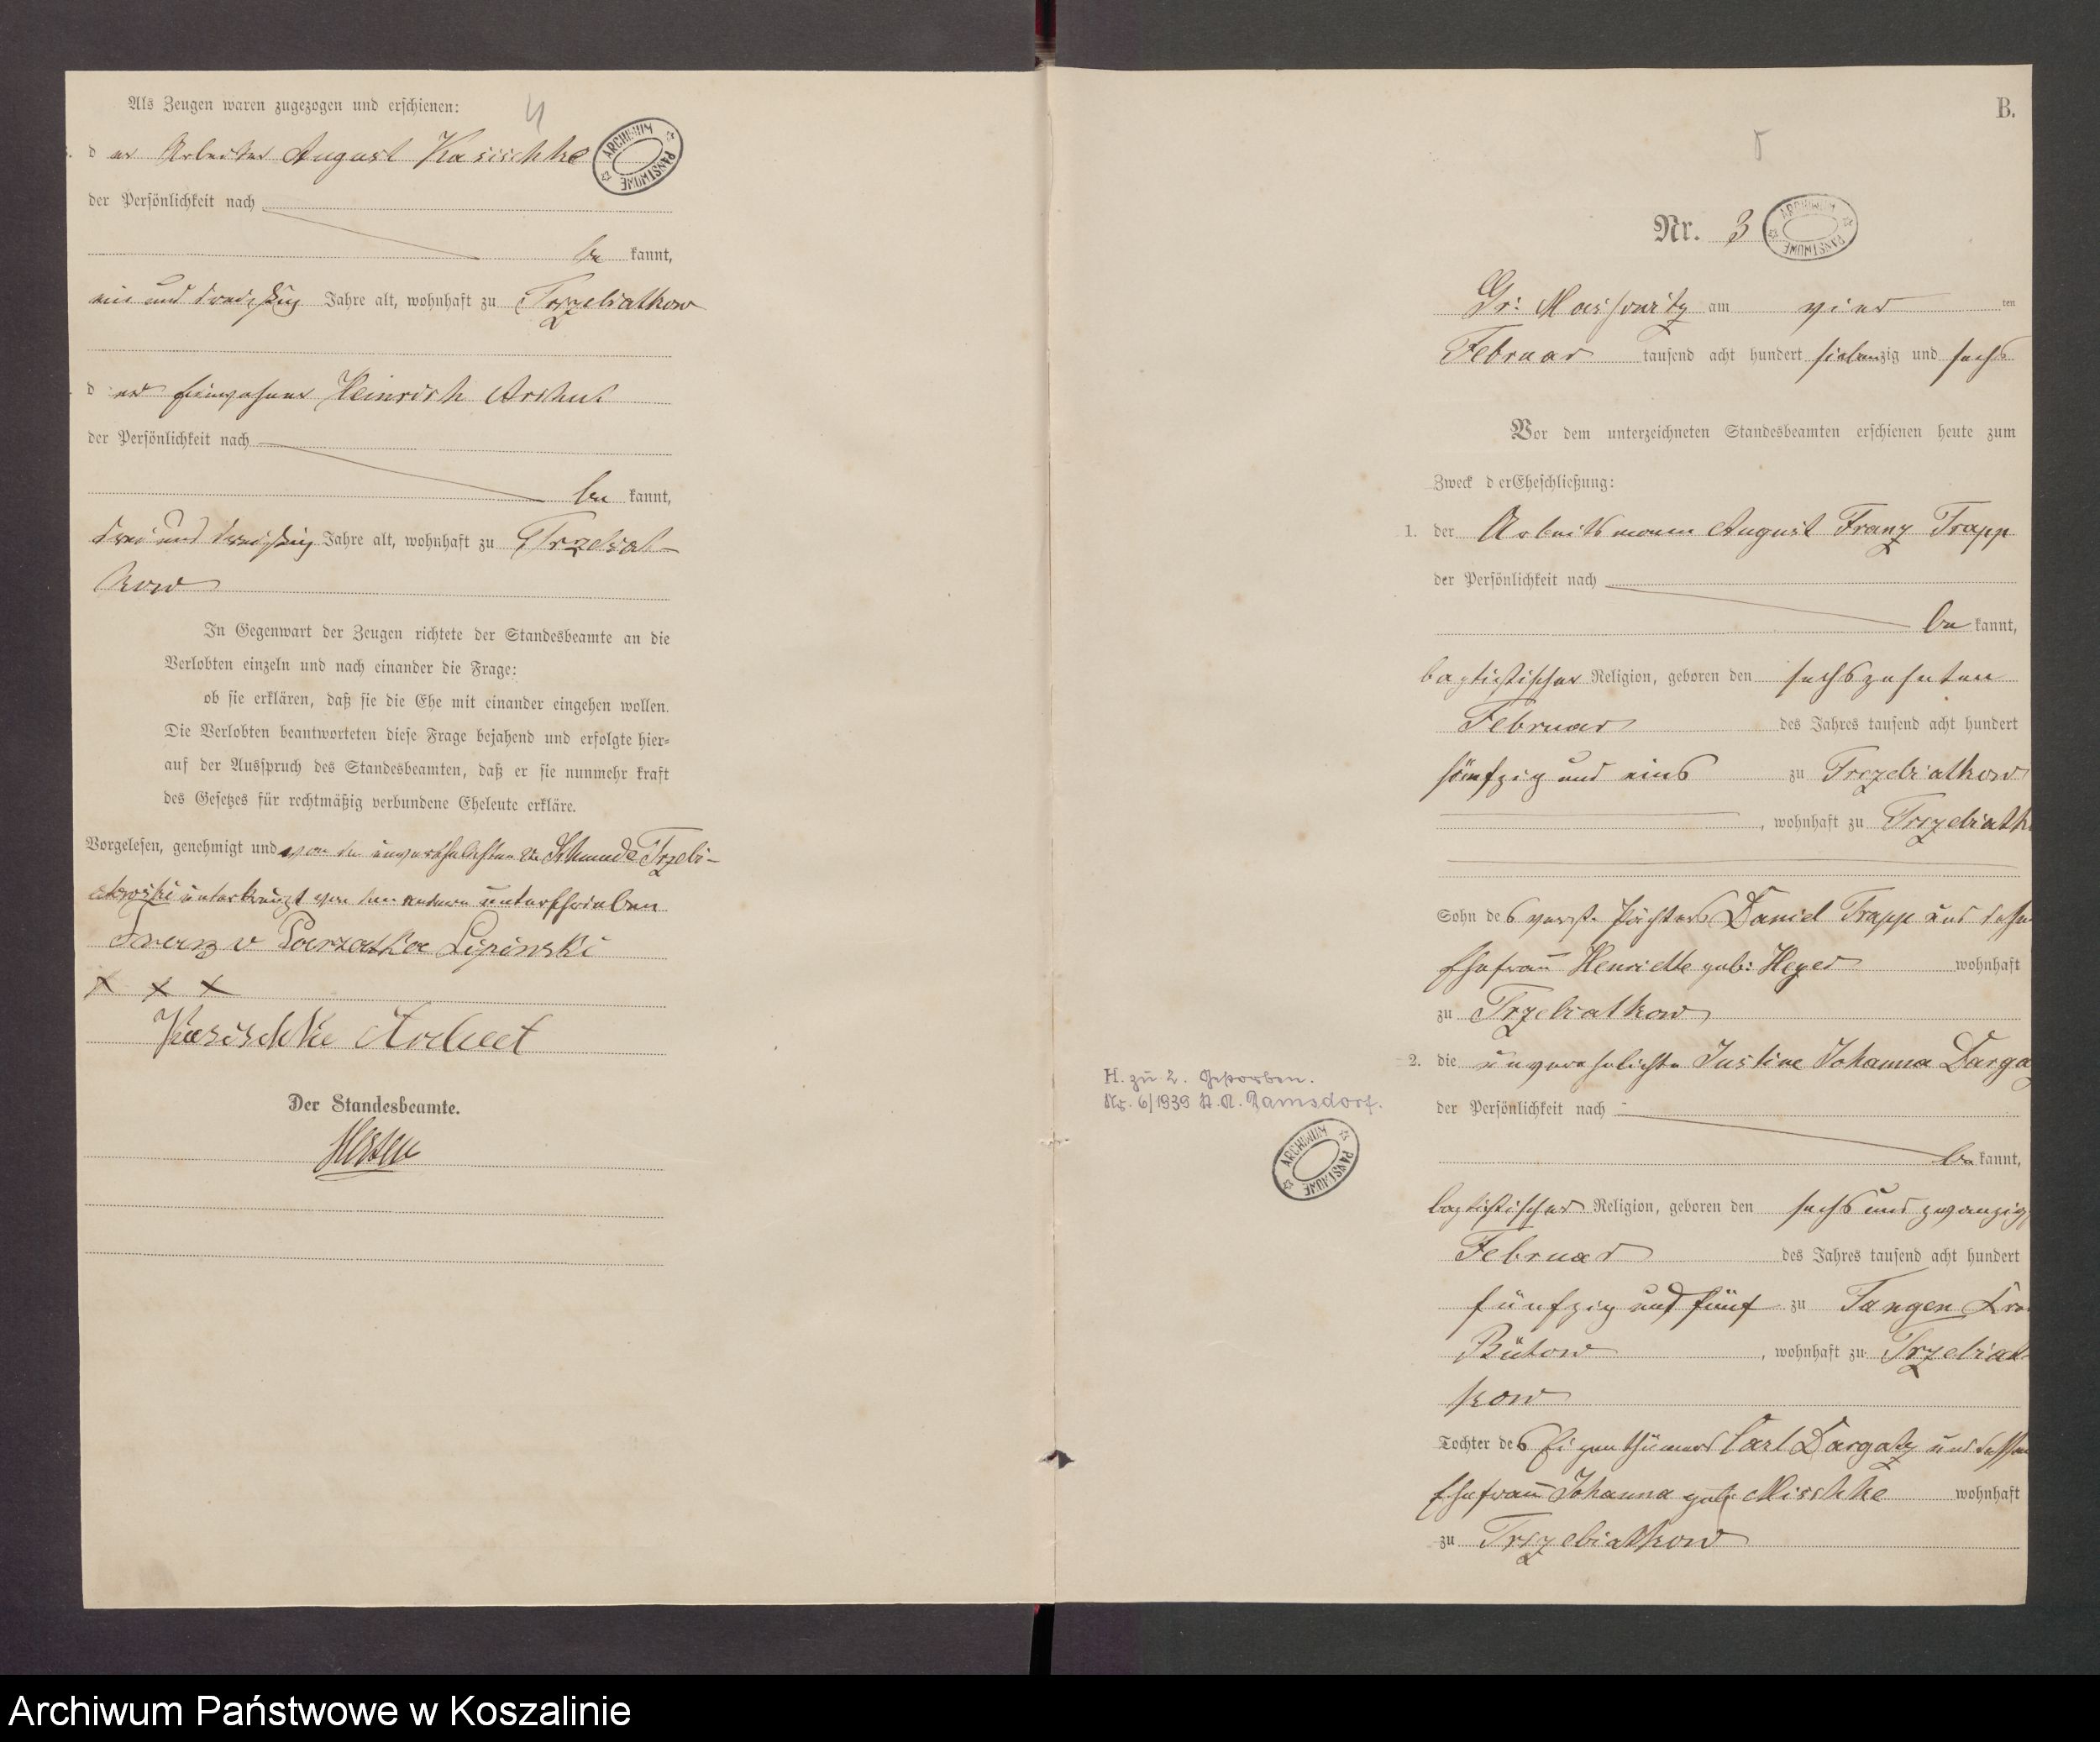 Als Zeugen waren zugezogen und erschienen:
4
d er Arbeiter August Kasischke
ARCHIWUM PAŃSTWOWE
der Persönlichkeit nach
be kannt,
ein und dreißig Jahre alt, wohnhaft zu Trzebiatkow
d er Einwohner Heinrich
der Persönlichkeit nach
be kannt,
drei und dreißig Jahre alt, wohnhaft zu Trzebiat-
kow
In Gegenwart der Zeugen richtete der Standesbeamte an die
Verlobten einzeln und nach einander die Frage:
ob sie erklären, daß sie die Ehe mit einander eingehen wollen.
Die Verlobten beantworteten diese Frage bejahend und erfolgte hier-
auf der Ausspruch des Standesbeamten, daß er sie nunmehr kraft
des Gesetzes für rechtmäßig verbundene Eheleute erkläre.
Vorgelesen, genehmigt und von der unverehelichten v. Trzebi-
atowski unterkreuzt von den andern unterschrieben
Franz v Lipinski
x x x
Kasischke
Der Standesbeamte.
B.
5
Nr. 3
ARCHIWUM PAŃSTWOWE
Gr: Massowitz am vier ten
Februar tausend acht hundert siebenzig und sechs
Vor dem unterzeichneten Standesbeamten erschienen heute zum
Zweck der Eheschließung:
1. der Arbeitsmann August Franz Trapp
der Persönlichkeit nach
be kannt,
baptistischer Religion, geboren den sechszehnten
Februar des Jahres tausend acht hundert
fünfzig und eins zu Trzebiatkow
, wohnhaft zu Trzebiatk
Sohn des verst. Pächters Daniel Trapp und dessen
Ehefrau Henriette geb: Heyer wohnhaft
zu Trzebiatkow
2. die unverehelichte Justine Johanna Darga
der Persönlichkeit nach
be kannt,
baptistischer Religion, geboren den sechs und zwanzig
Februar des Jahres tausend acht hundert
fünfzig und fünf zu Tangen
Bütow, wohnhaft zu Trzebiat-
kow
Tochter des Eigenthümers Carl Dargatz und dessen
Ehefrau Johanna geb: Mischke wohnhaft
zu Trzebiatkow
H. zu 2. Gestorben.
Nr. 6/1939 St. A. Ramsdorf.
ARCHIWUM PAŃSTWOWE
Archiwum Państwowe w Koszalinie